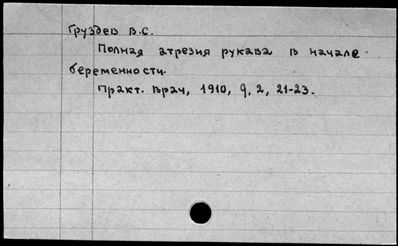 Груздев В.С.
Полная атрезия рукава в начале
беременности.
Практ. врач, 1910, 9, 2, 21-23.